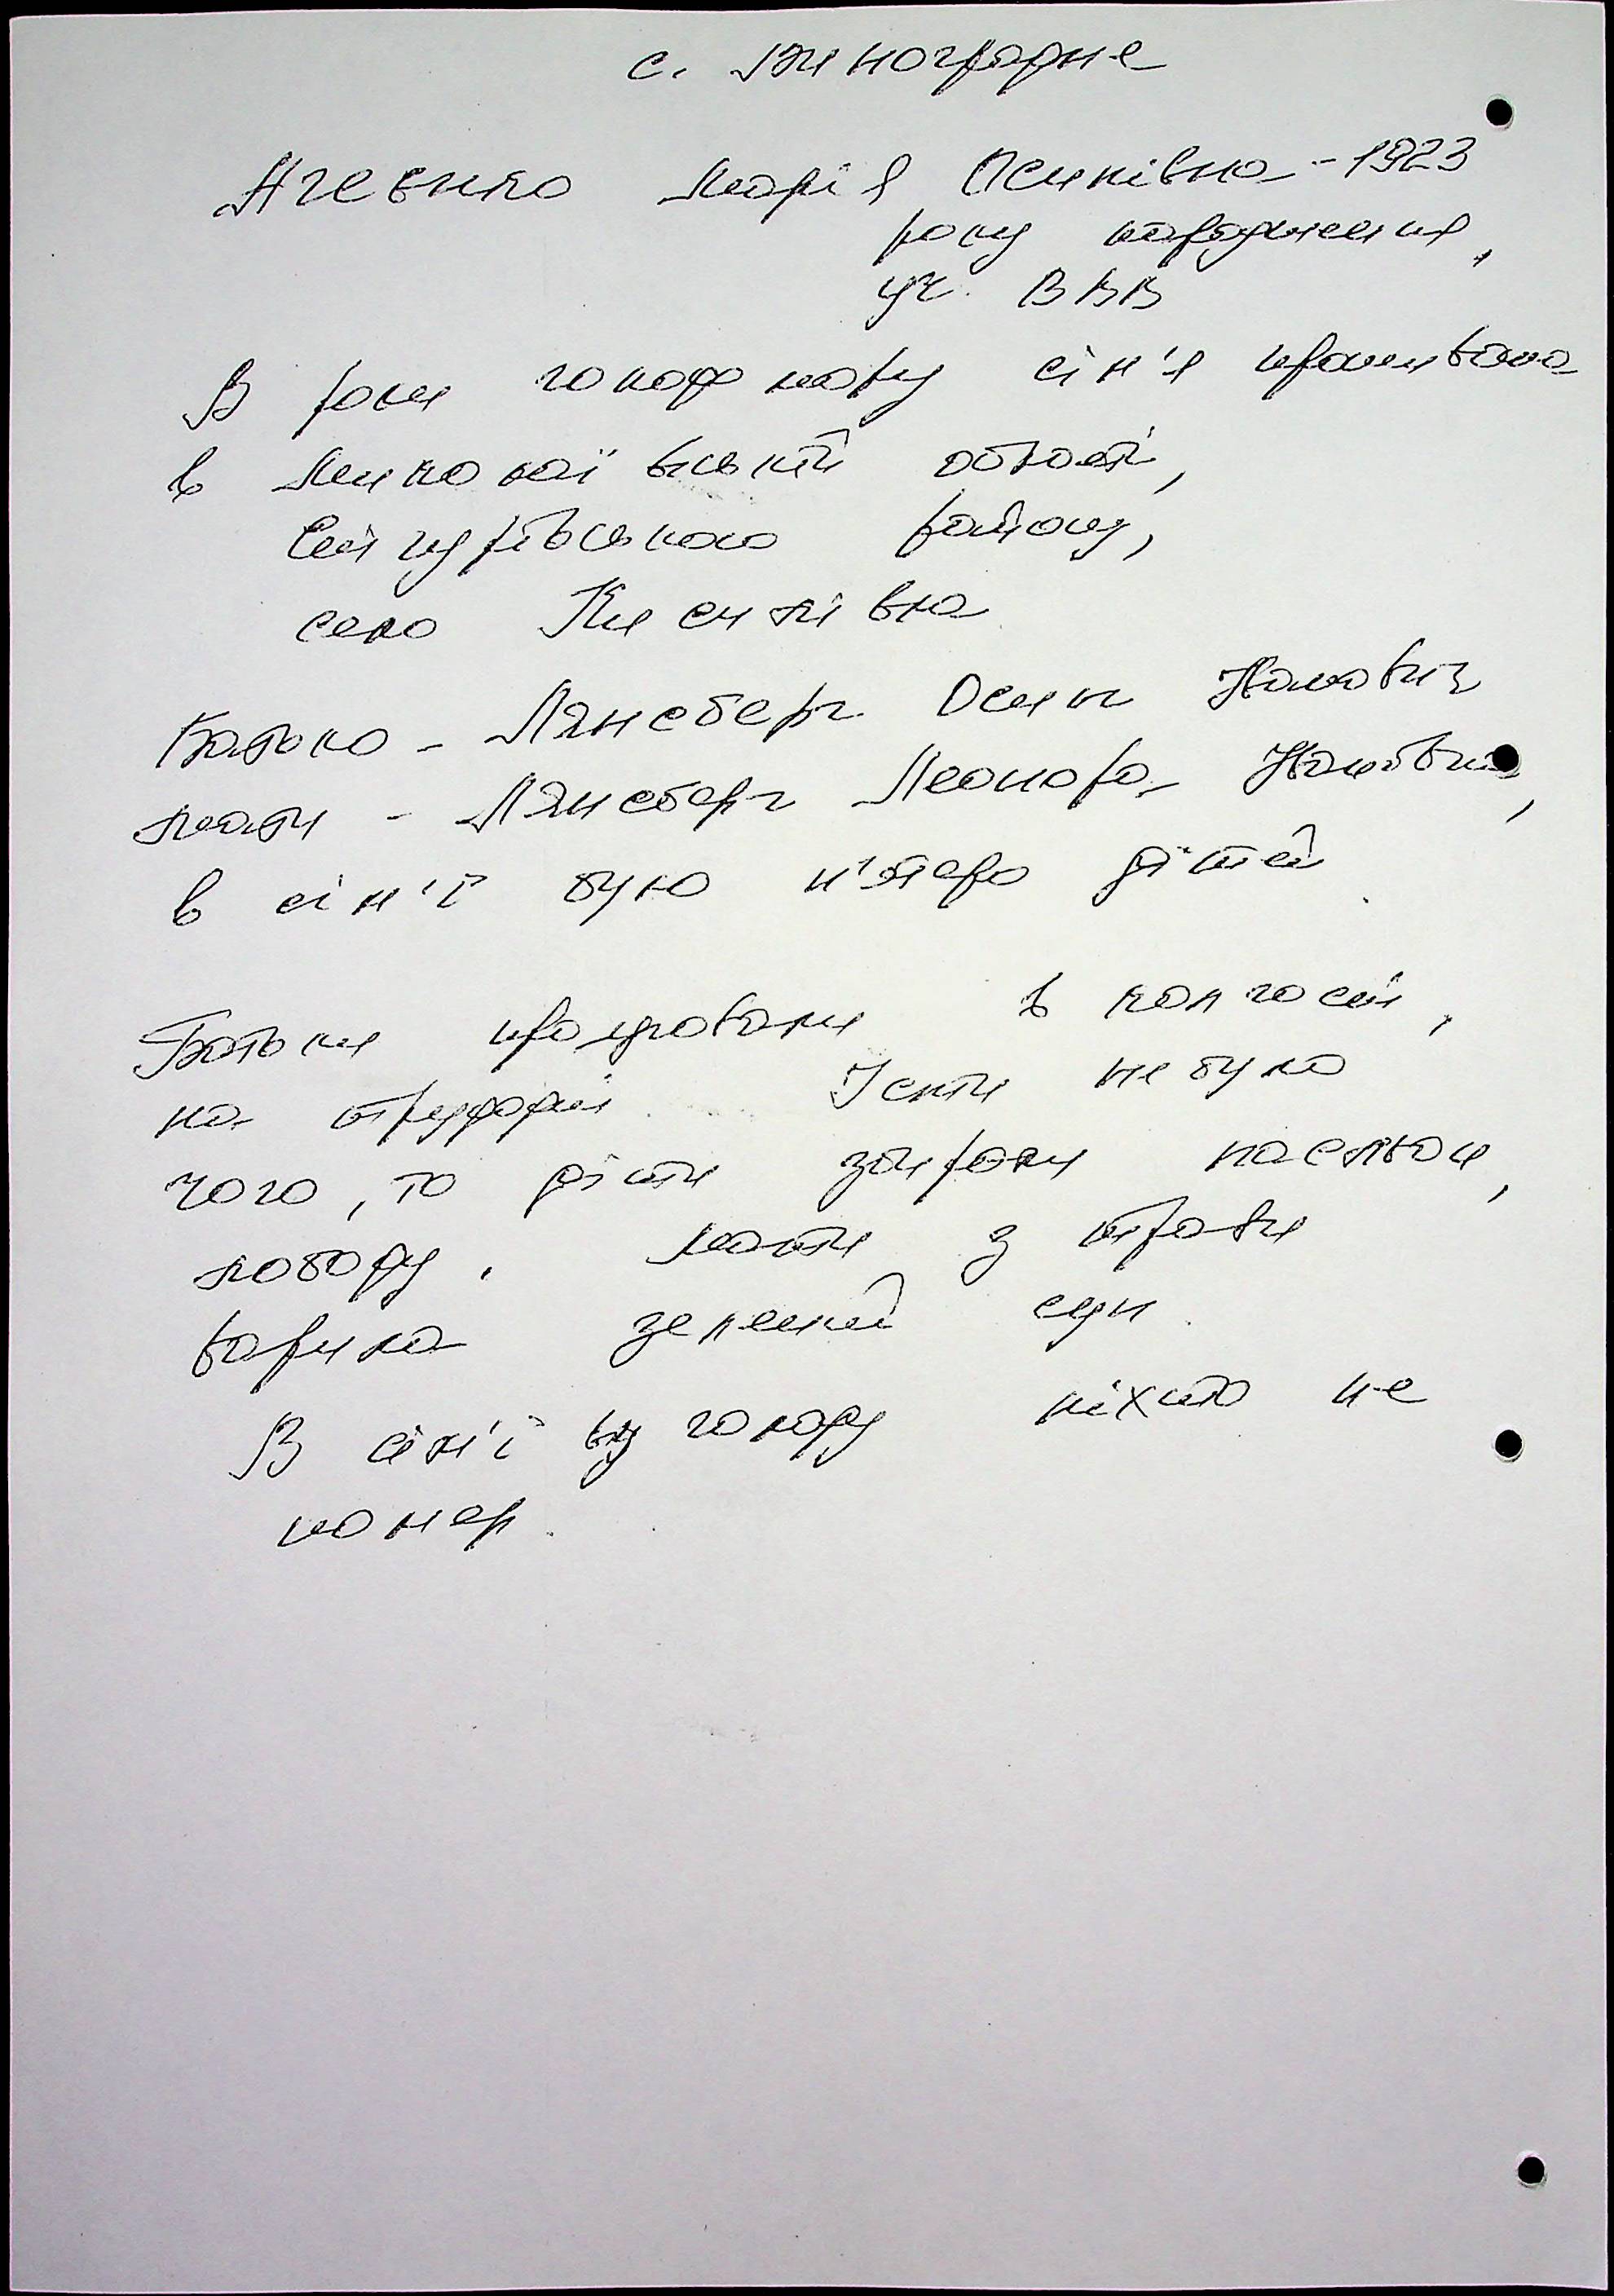 с. Виноградне
Агеєнко Марія Осипівна - 1923
року народження,
уч. ВВВ
В роки голодомору сім'я проживала
в Миколаївській області,
Снігурівського району,
село Киселівка
Батько - Лянсберг Осип
мати - Лянсберг Леонора
в сім'ї було п'ятеро дітей.
Батьки працювали в колгоспі,
на тракторі. Їсти не було
чого, то діти збирали пасльон,
лободу, мати з трави
варила зелений суп.
В сім'ї від голоду ніхто не
помер.